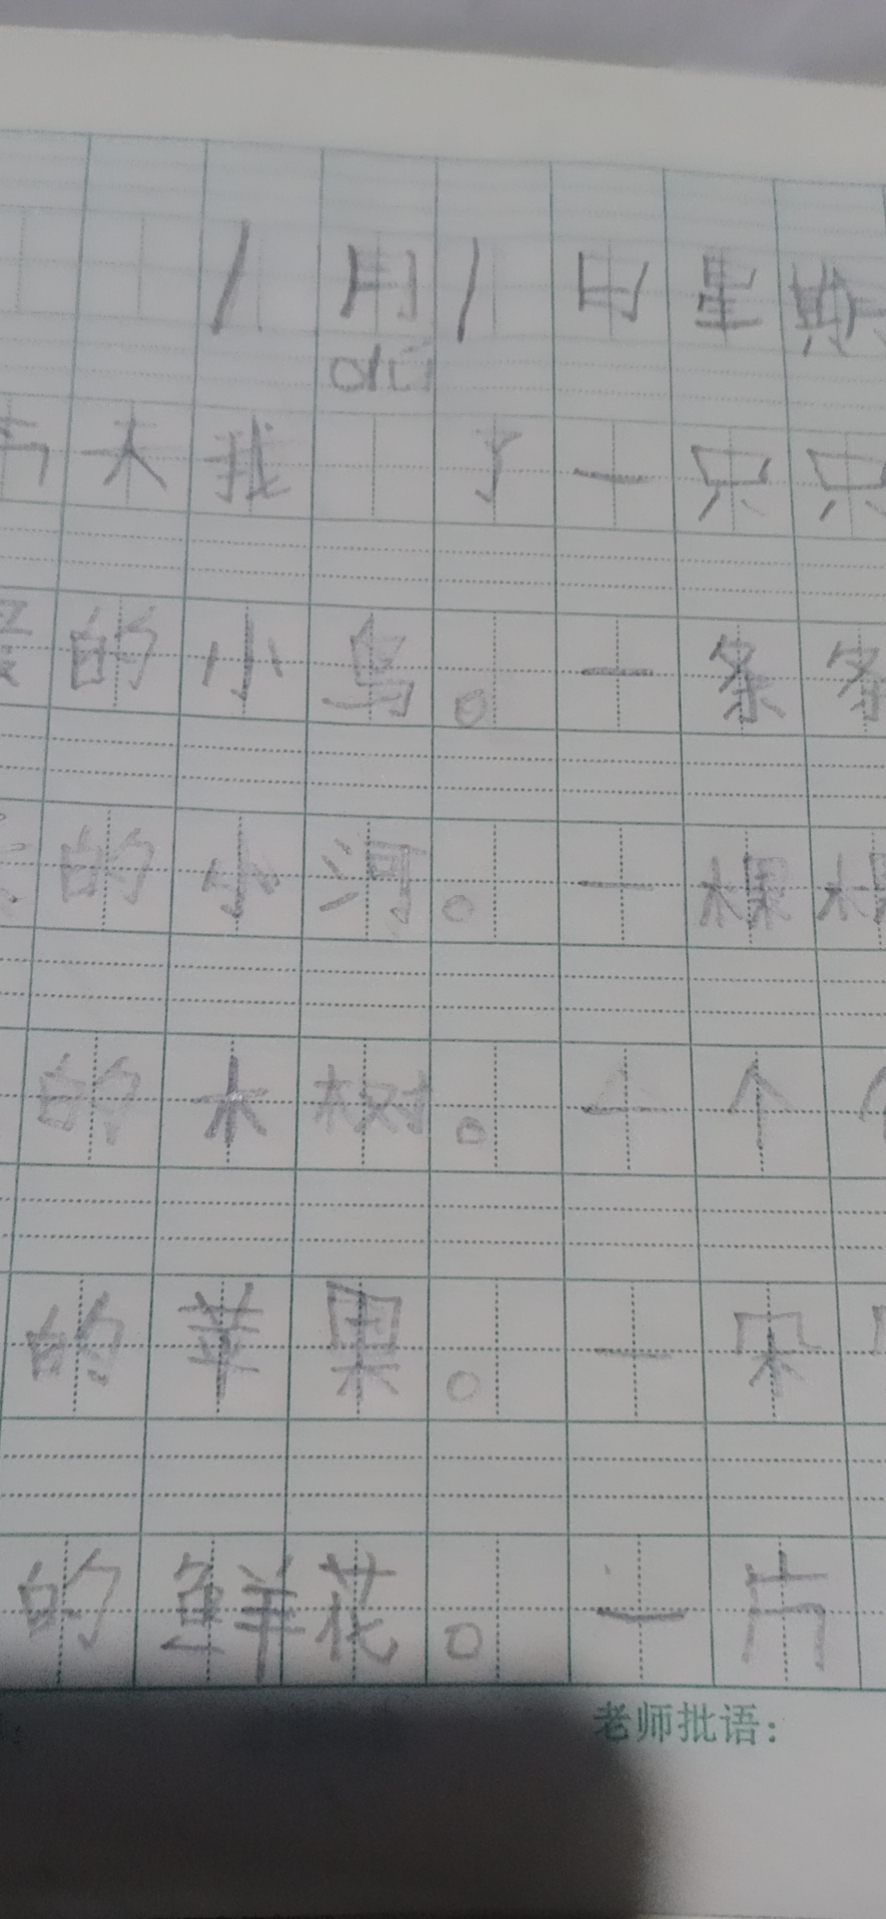 1月11日星期
今天我 了一只只
的小鸟。一条条
的小河。一棵棵
的木树。一个个
的苹果。一朵
的鲜花。一片
老师批语: